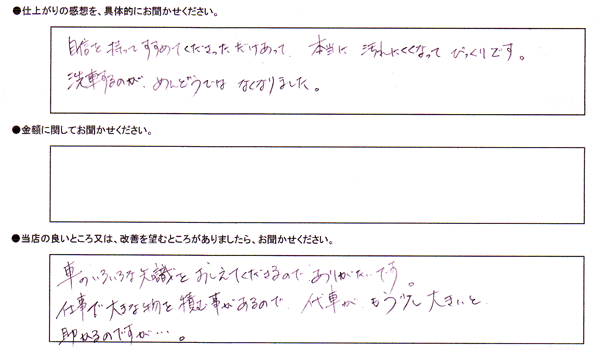 ●仕上がりの感想を、具体的にお聞かせください。
自信を持ってすすめてくださっただけあって、本当に汚れにくくなってびっくりです。
洗車するのが、めんどうではなくなりました。
●金額に関してお聞かせください。
●当店の良いところ又は、改善を望むところがありましたら、お聞かせください。
車のいろいろな知識をおしえてくださるのでありがたいです。
仕事で大きな物を積む事があるので、代車がもう少し大きいと
助かるのですが…。